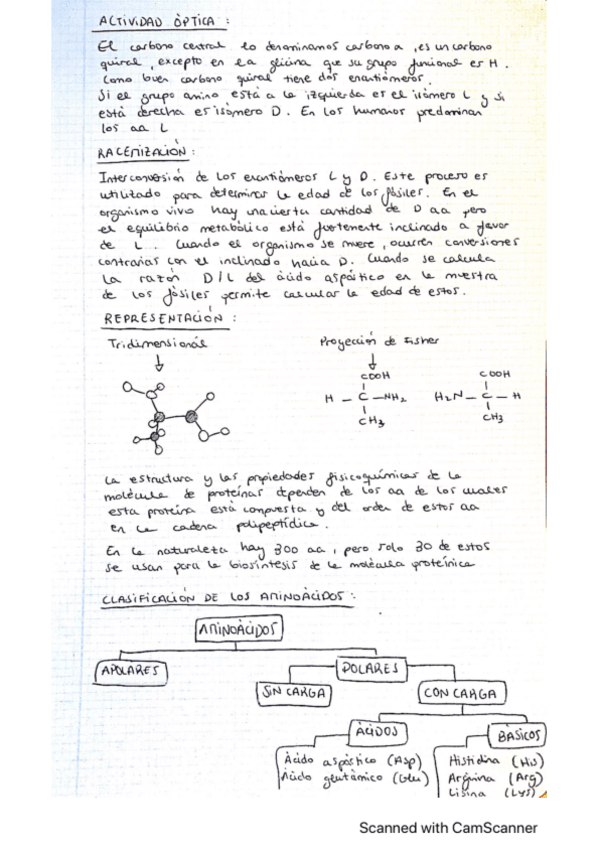 ACTIVIDAD ÓPTICA :
El carbono central lo denominamos carbono α, es un carbono
quiral, excepto en la glicina que su grupo funcional es H.
Como buen carbono quiral tiene dos enantiómeros.
Si el grupo amino está a la izquierda es el isómero L y si
está derecha es isómero D. En los humanos predominan
los aa L
RACEMIZACIÓN :
Interconversión de los enantiómeros L y D. Este proceso es
utilizado para determinar la edad de los fósiles. En el
organismo vivo hay una cierta cantidad de D aa pero
el equilibrio metabólico está fuertemente inclinado a favor
de L. Cuando el organismo se muere, ocurren conversiones
contrarias con el inclinado hacia D. Cuando se calcula
la razón D/L del ácido aspártico en la muestra
de los fósiles permite calcular la edad de estos.
REPRESENTACIÓN :
Tridimensional
Proyección de Fisher
COOH
COOH
H - C - NH2
H2N - C - H
CH3
CH3
La estructura y las propiedades fisicoquímicas de la
molécula de proteínas dependen de los aa de los cuales
esta proteína está compuesta y del orden de estos aa
en la cadena polipeptídica.
En la naturaleza hay 300 aa, pero solo 30 de estos
se usan para la biosíntesis de la molécula proteínica
CLASIFICACIÓN DE LOS AMINOÁCIDOS :
AMINOÁCIDOS
APOLARES
POLARES
SIN CARGA
CON CARGA
ÁCIDOS
BÁSICOS
Ácido aspártico (Asp)
Ácido glutámico (Glu)
Histidina (His)
Arginina (Arg)
Lisina (Lys)
Scanned with CamScanner